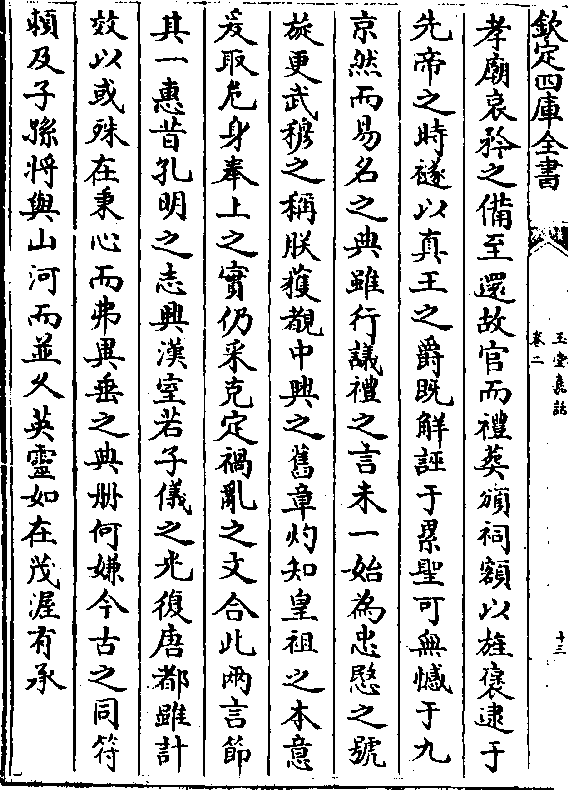 欽定四庫全書
玉堂嘉話
卷二
十三
孝廟哀矜之備至還故官而禮葬頒祠額以旌褒逮于
先帝之時襚以真王之爵既觧誣于累聖可無憾于九
京然而易名之典雖行議禮之言未一始為忠愍之號
旋更武穆之稱朕獲覩中興之舊章灼知皇祖之本意
爰取危身奉上之實仍采克定禍亂之文合此兩言節
其一惠昔孔明之志興漢室若子儀之光復唐都雖計
效以或殊在秉心而弗異垂之典册何嫌今古之同符
頼及子孫将與山河而並乆英靈如在茂渥有承